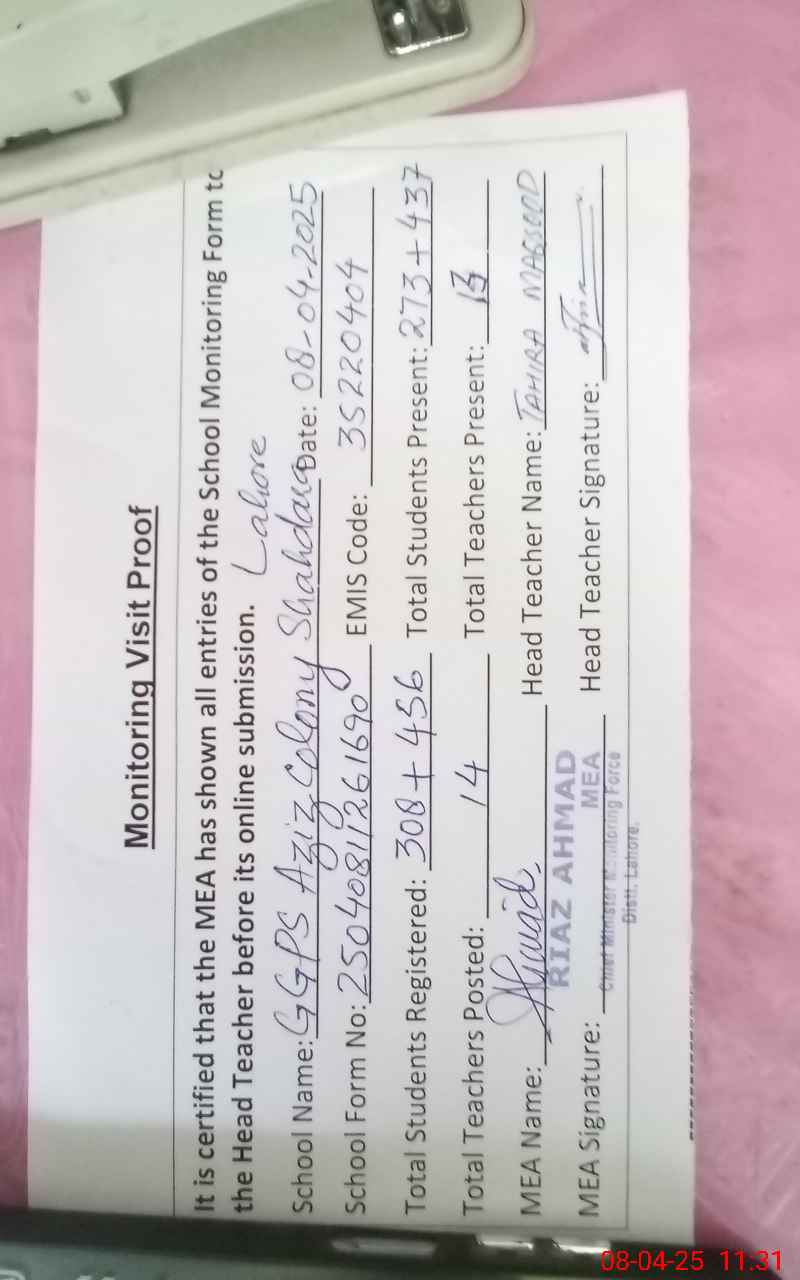 Monitoring Visit Proof
It is certified that the MEA has shown all entries of the School Monitoring Form to
the Head Teacher before its online submission. Lahore
School Name: GGPS Aziz Colony Shahdara Date: 08-04-2025
School Form No: 25040811261690 EMIS Code: 35220404
Total Students Registered: 308+456 Total Students Present: 273+437
Total Teachers Posted: 14 Total Teachers Present: 13
MEA Name: Head Teacher Name: TAHIRA MASOOD
RIAZ AHMAD
MEA
MEA Signature: Head Teacher Signature:
Chief Minister Monitoring Force
Distt. Lahore.
08-04-25 11:31